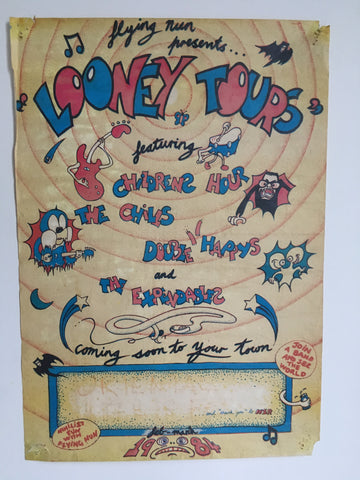 flying nun
presents...
LOONEY TOURS
featuring
CHILDRENS HOUR
THE CHILLS
DOUBLE HAPPYS
and
THE EXPENDABLES
coming soon to your town
JOIN
A BAND
AND SEE
THE
WORLD
FUN
WITH
FLYING NUN
and "thank you" to
feb-march
1984